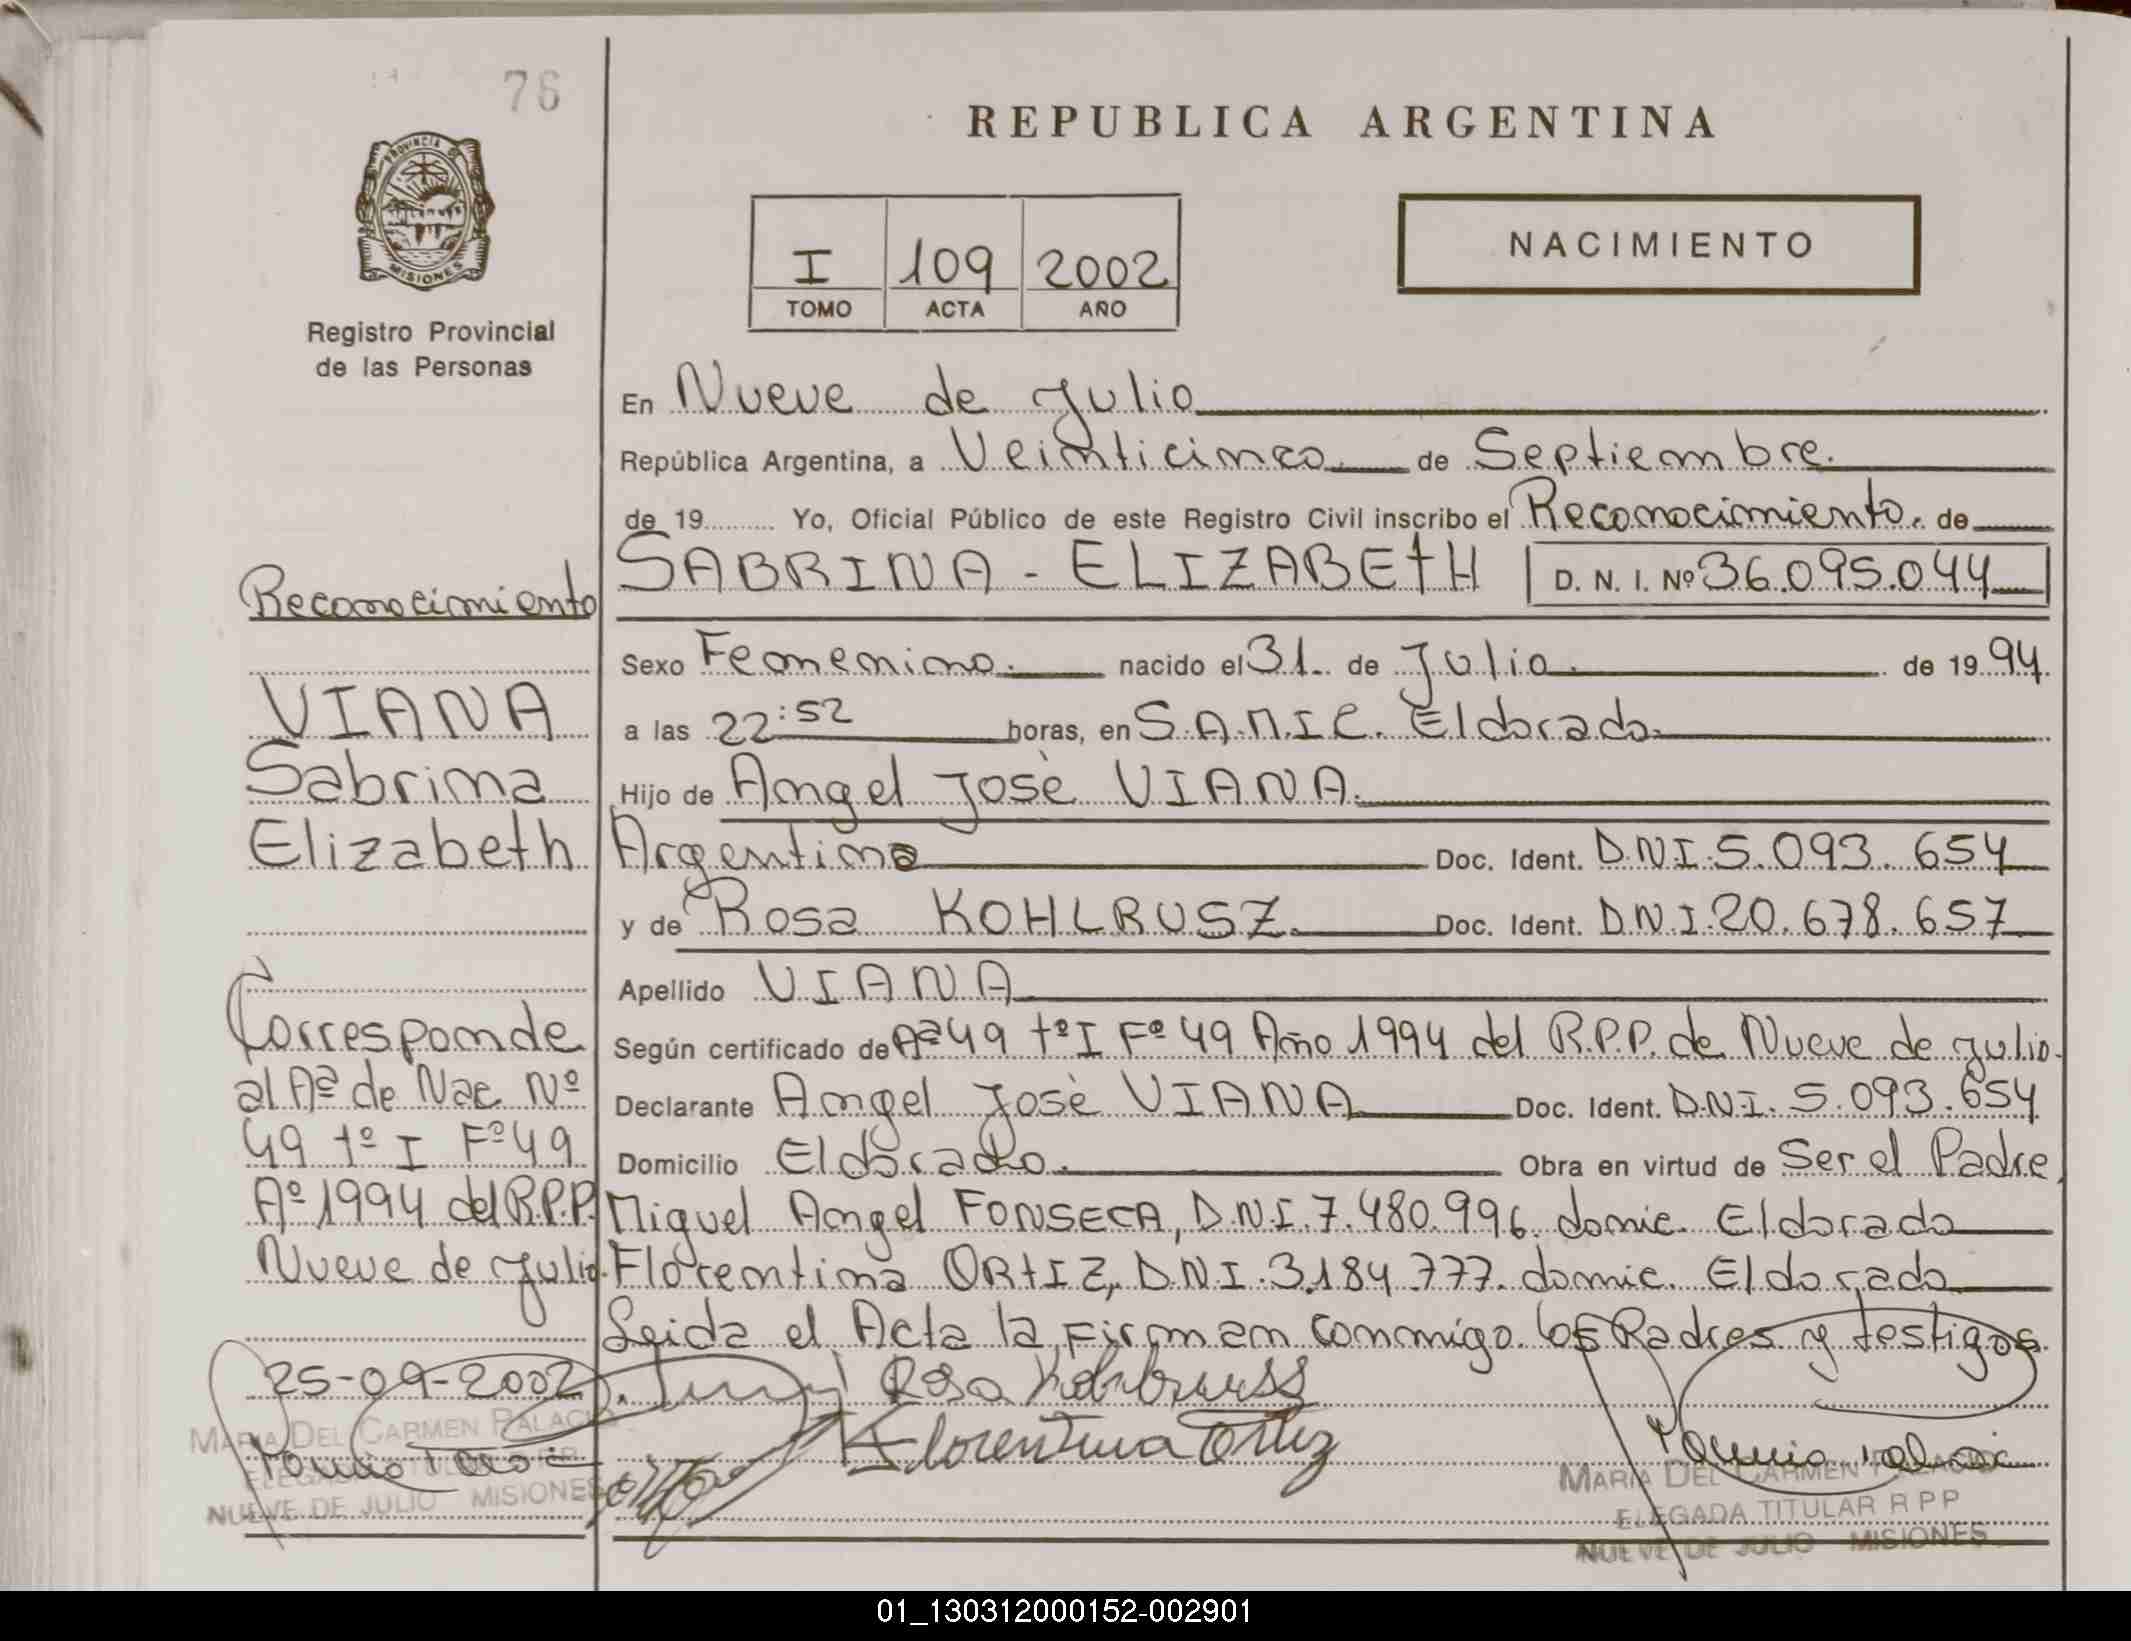 76
REPUBLICA ARGENTINA
PROVINCIA DE
MISIONES
Registro Provincial
de las Personas
I 109 2002
TOMO ACTA AÑO
NACIMIENTO
En Nueve de Julio
República Argentina, a Veinticinco de Septiembre.
de 19......... Yo, Oficial Público de este Registro Civil inscribo el Reconocimiento. de
SABRINA - ELIZABEtH D. N. I. Nº 36.095.044
Sexo Femenino. nacido el 31. de Julio. de 19 94.
a las 22:52 horas, en S.A.M.I.C. Eldorado.
Hijo de Angel Josè VIANA.
Argentino Doc. Ident. D.N.I. 5.093.654
y de Rosa KOHLRUSZ. Doc. Ident. D.N.I. 20.678.657
Apellido VIANA
Según certificado de Aª 49 tº I Fº 49 Año 1994 del R.P.P. de Nueve de Julio.
Declarante Angel Josè VIANA Doc. Ident. D.N.I. 5.093.654
Domicilio Eldorado. Obra en virtud de Ser el Padre,
Miguel Angel FONSECA, D.N.I. 7.480.996. domic. Eldorado
Florentina ORtIZ, D.N.I. 3.184.777. domic. Eldorado
Leida el Acta la Firman conmigo los Padres y testigos.
Reconocimiento
VIANA
Sabrina
Elizabeth
Corresponde
al Aª de Nac Nº
49 tº I Fº 49
Aº 1994 del R.P.P.
Nueve de Julio.
25-09-2002.
Rosa
Florentina Ortiz
MARIA DEL CARMEN PALACIO
NUEVE DE JULIO MISIONES
MARIA DEL CARMEN PALACIO
ELEGADA TITULAR R P P
NUEVE DE JULIO MISIONES
01_130312000152-002901